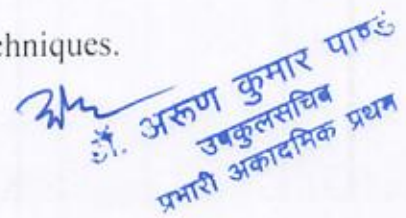 chniques.
डॉ. अरूण कुमार पाण्डे
उपकुलसचिव
प्रभारी अकादमिक प्रथम